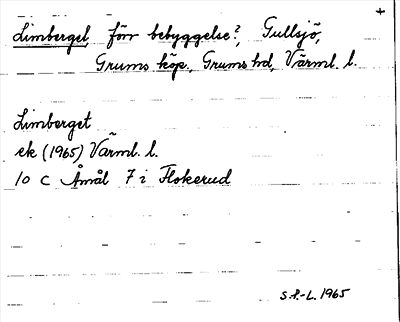 +
Limberget, förr bebyggelse?, Gullsjö,
Grums köp., Grums hd, Värml. l.
Limberget
ek (1965) Värml. l.
10 C Åmål 7 i Flokerud
S.P.-L. 1965